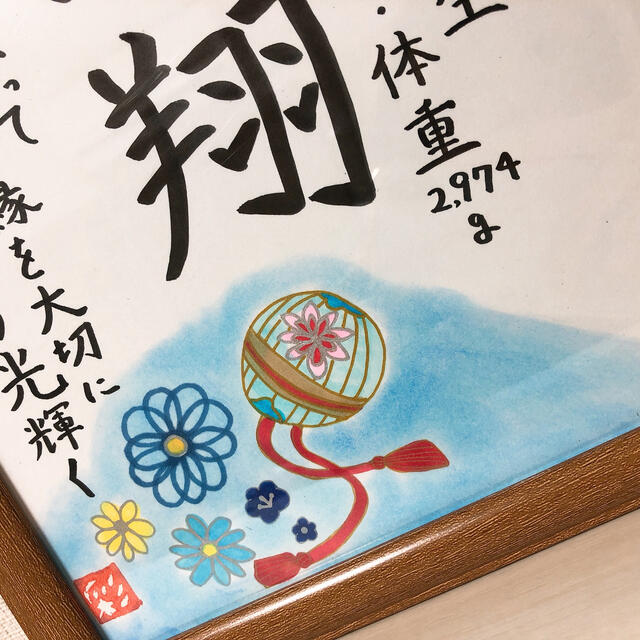 生
体重
2,974
g
翔
って
縁を大切に
光輝く